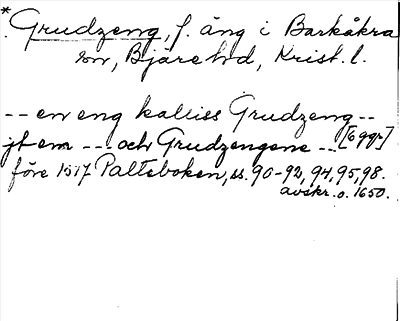 * Grudzeng, f. äng i Barkåkra
sn, Bjäre hd, Krist. l.
-- en eng kalliss Grudzeng --
jt em --- och Grudzengene -- [6 ggr]
före 1517 Palteboken, ss. 90-92, 94, 95, 98.
avskr. o. 1650.